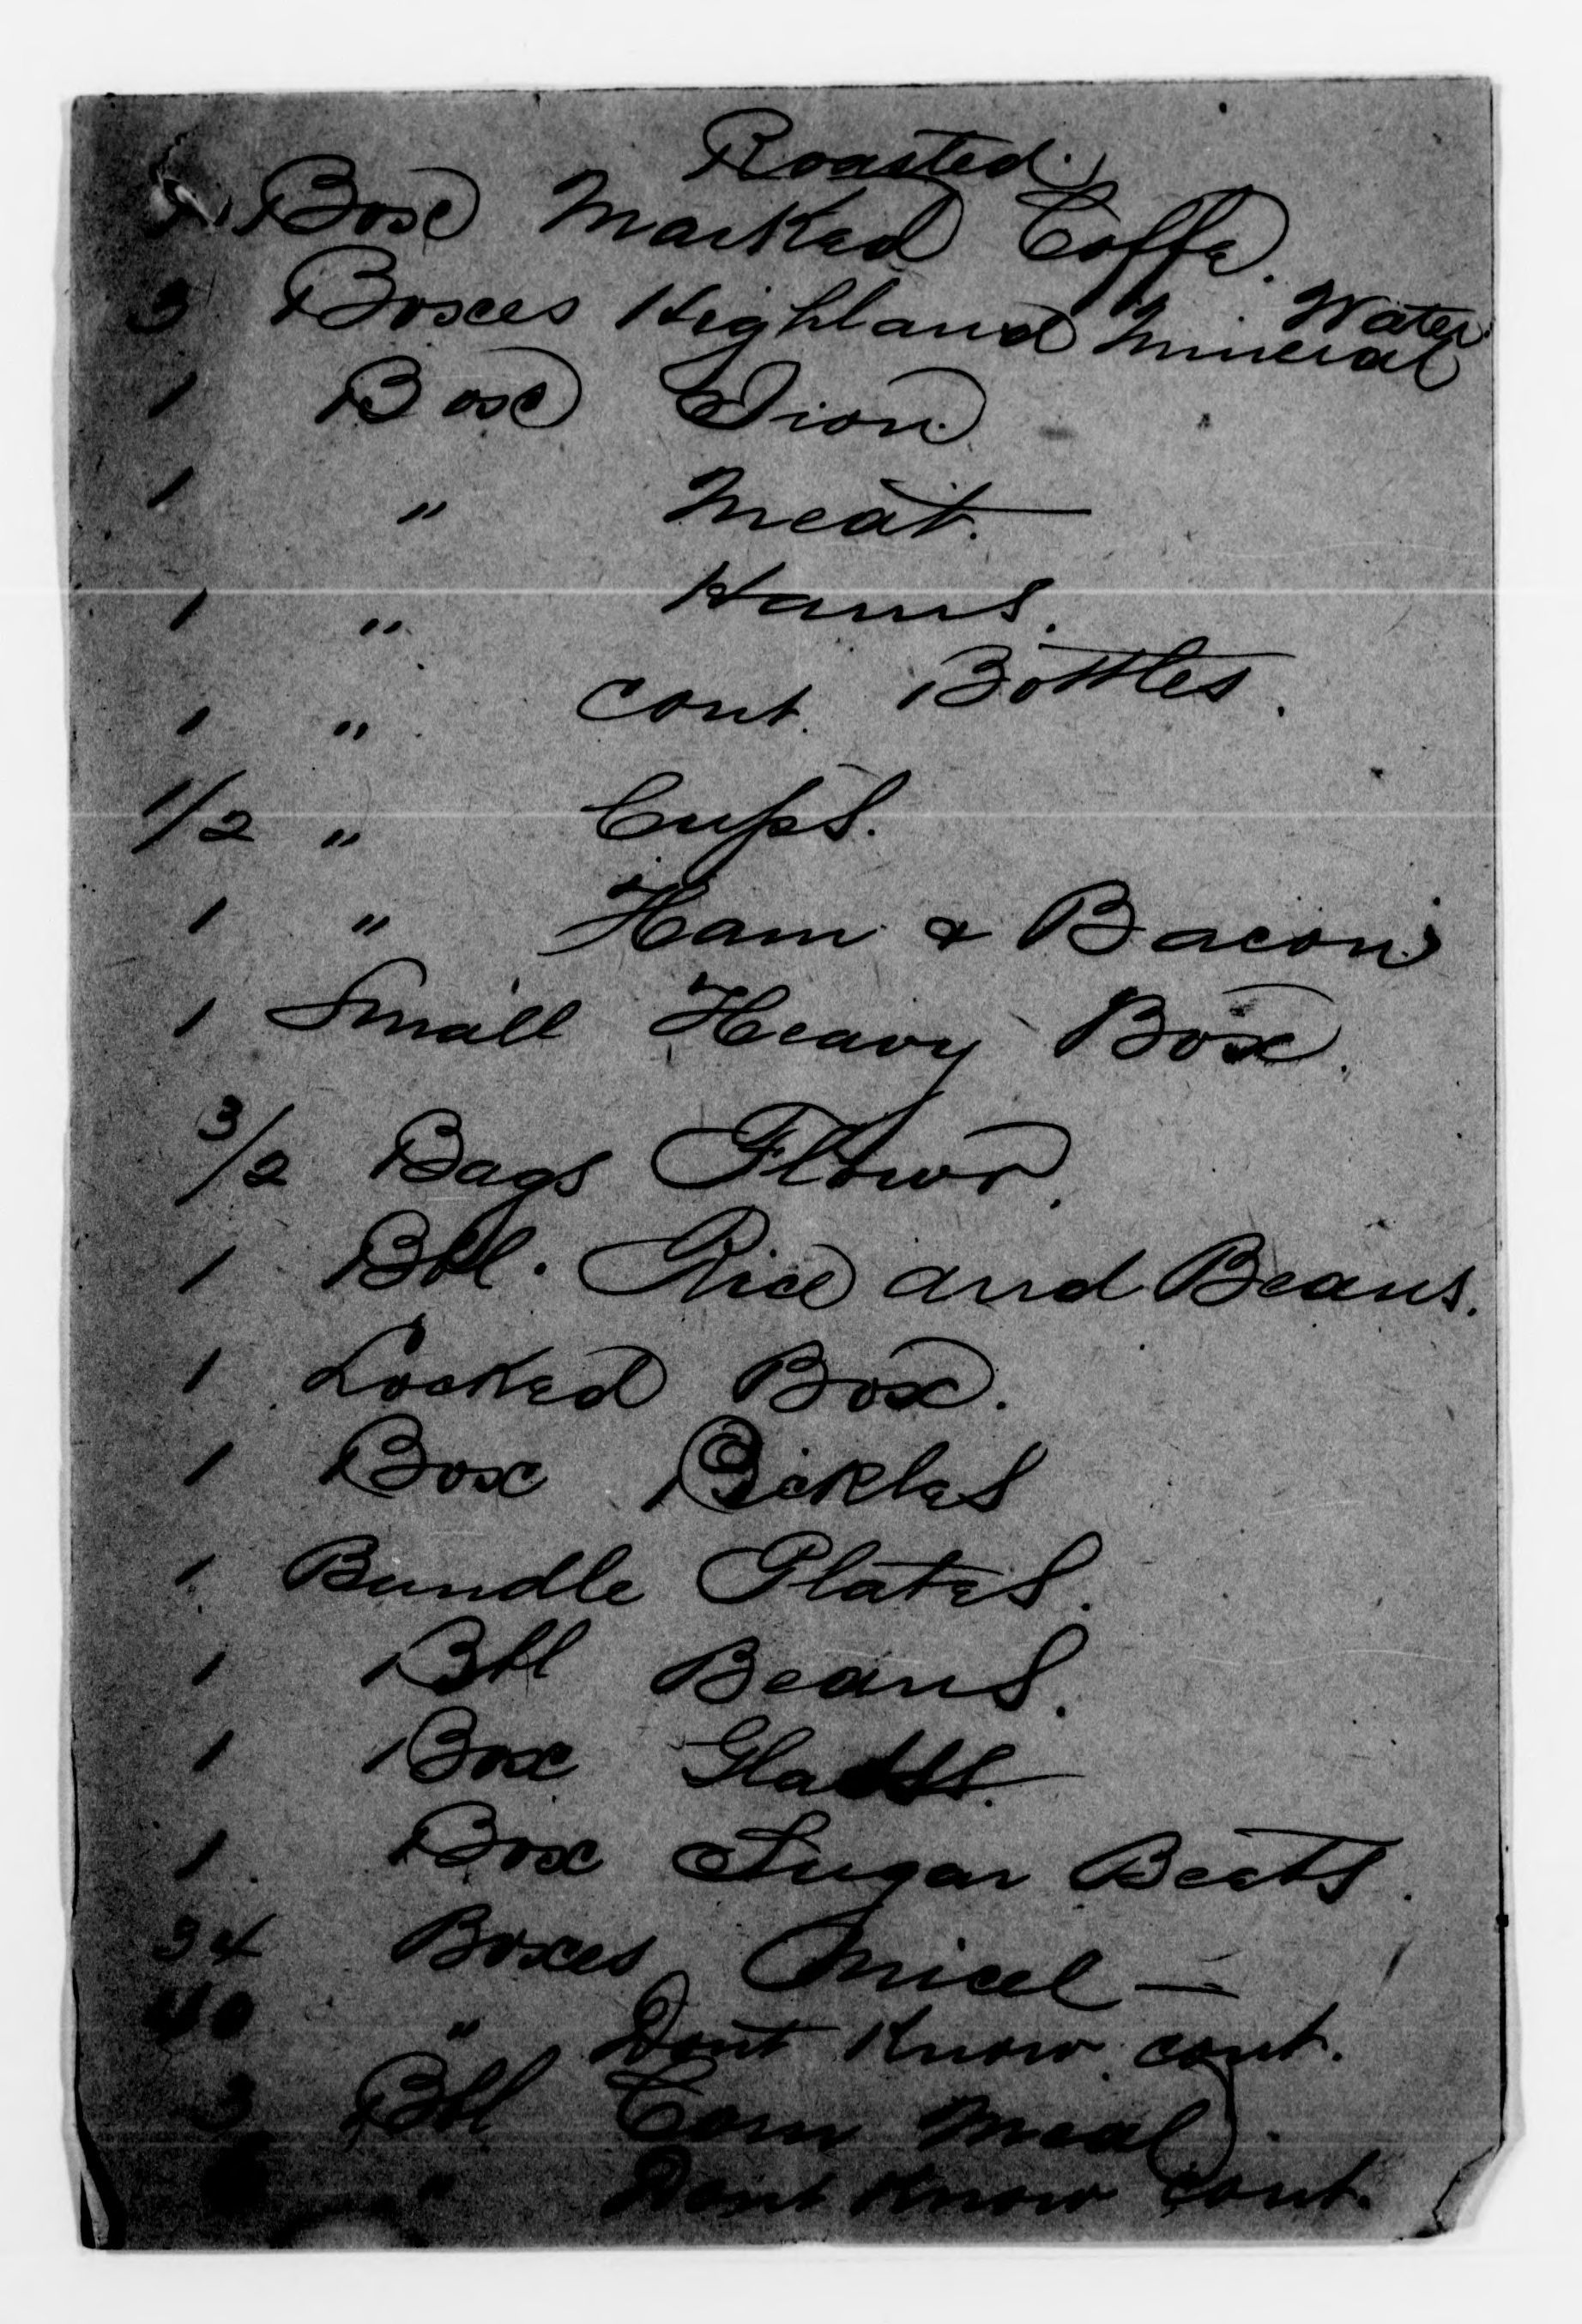 Roasted.
1 Box Marked Coffe.
Water
3 Boxes Highland Mineral
1 Box Iron.
1 " Meat.
1 " Hams.
1 " cont. Bottles.
1/2 " Cups.
1 " Ham & Bacon
1 Small Heavy Box.
3/2 Bags Flowr.
1 Bbl. Rice and Beans.
1 Locked Box.
1 Box Pickles
1 Bundle Plates.
1 Bbl Beans.
1 Box Glass.
1 Box Sugar Beets.
34 Boxes Micel —
40 " Dont Know cont.
3 Bbl Corn Meal.
" Dont Know cont.